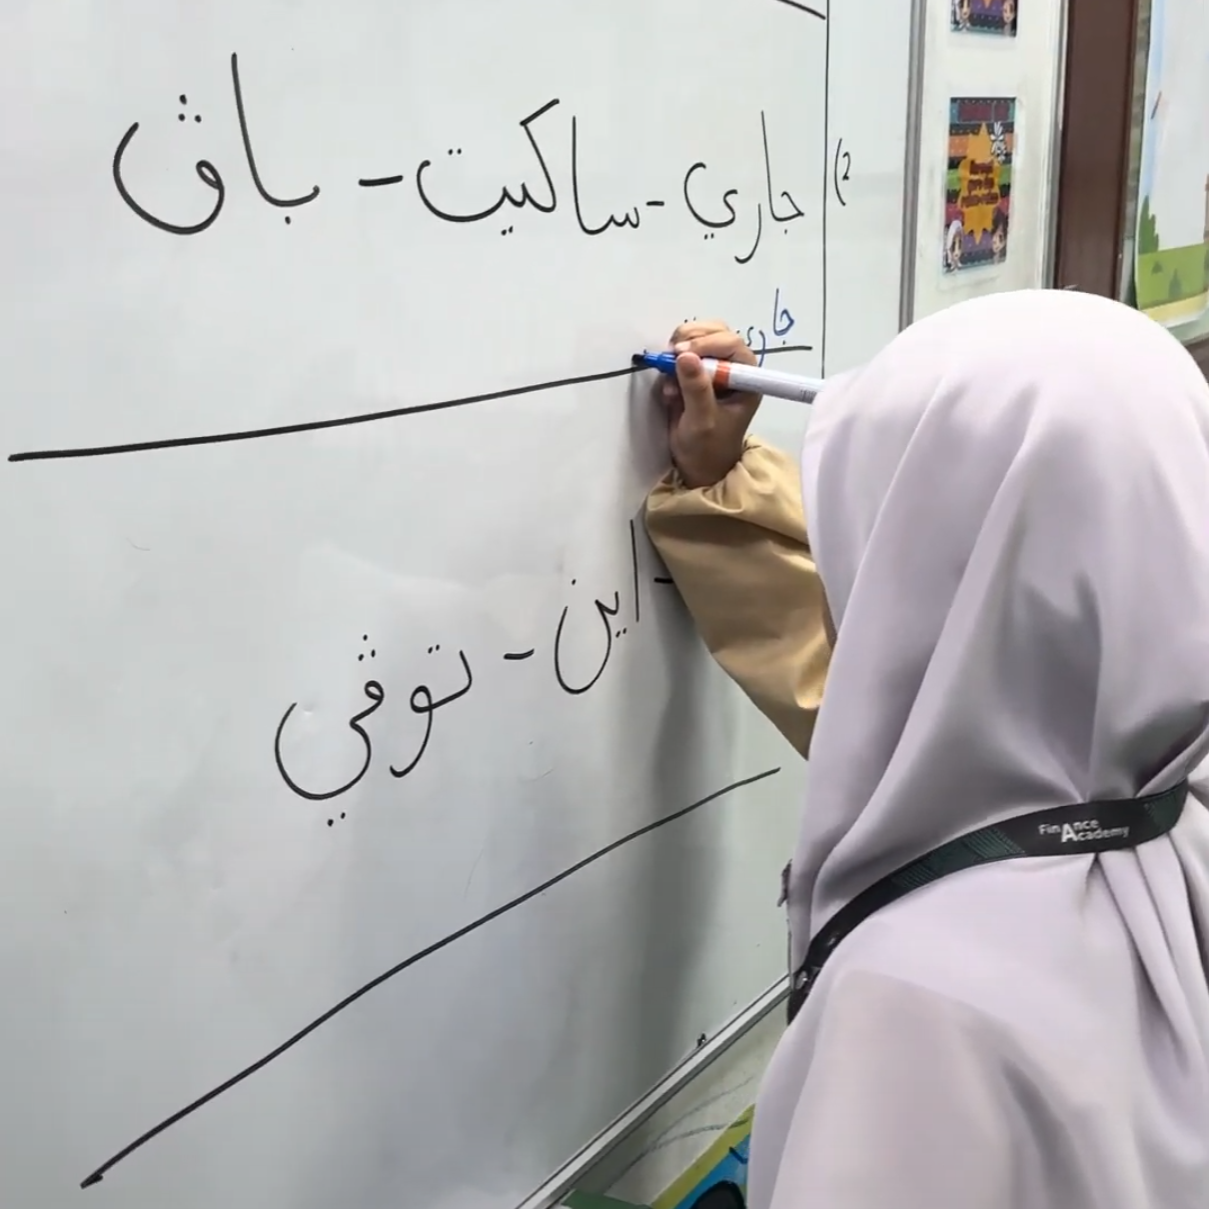 2) جاري - ساكيت - باڤ
جاري
- اين - توڤي
FinAnce
Academy